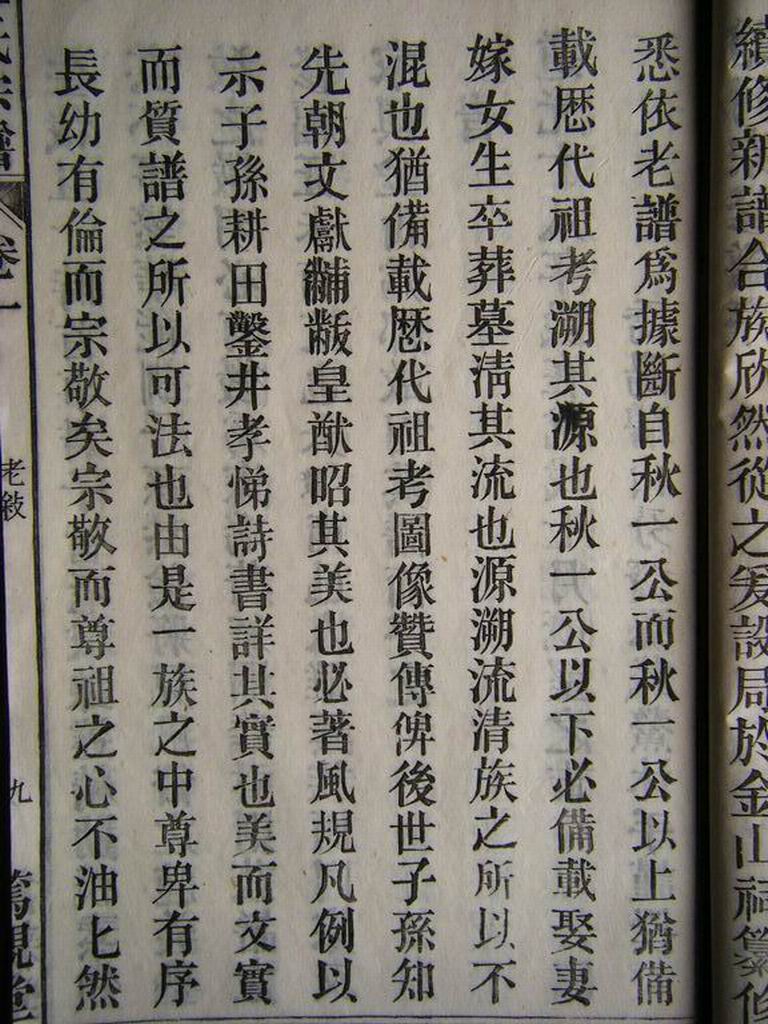 續修新譜合族欣然從之爰設局於金山祠纂修
悉依老譜爲據斷自秋一公而秋一公以上猶備
載歷代祖考溯其源也秋一公以下必備載娶妻
嫁女生卒葬墓清其流也源溯流清族之所以不
混也猶備載歷代祖考圖像贊傳俾後世子孫知
先朝文獻黼黻皇猷昭其美也必著風規凡例以
示子孫耕田鑿井孝悌詩書詳其實也美而文實
而質譜之所以可法也由是一族之中尊卑有序
長幼有倫而宗敬矣宗敬而尊祖之心不油匕然
氏宗譜
卷一
老敘
九